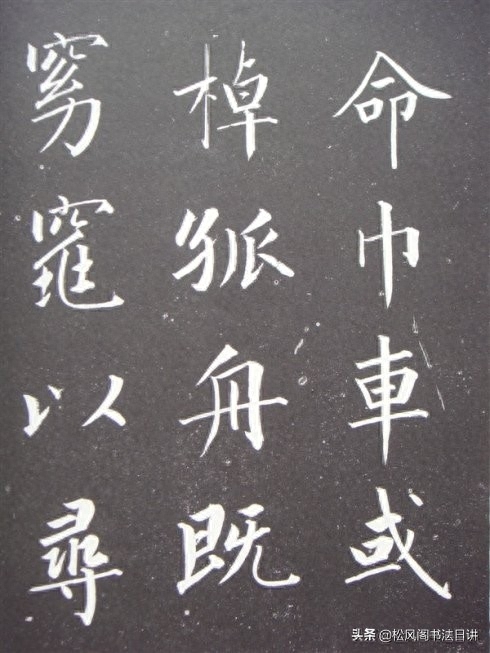 命巾車或
棹孤舟既
窈窕以尋
头条 @松风阁书法日讲